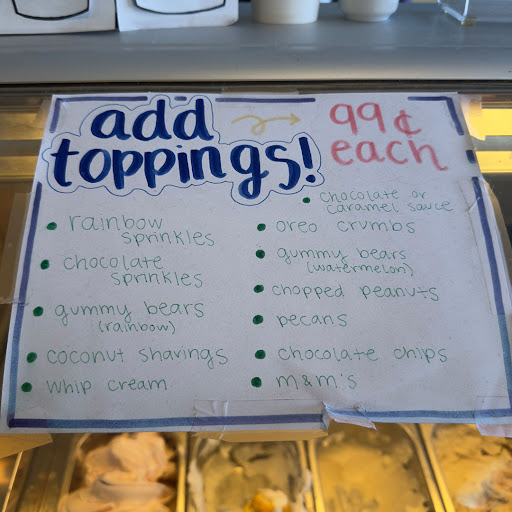 add
toppings!
99¢
each
• rainbow
sprinkles
• chocolate
sprinkles
• gummy bears
(rainbow)
• coconut shavings
• whip cream
• chocolate or
caramel sauce
• oreo crumbs
• gummy bears
(watermelon)
• chopped peanuts
• pecans
• chocolate chips
• m&m's